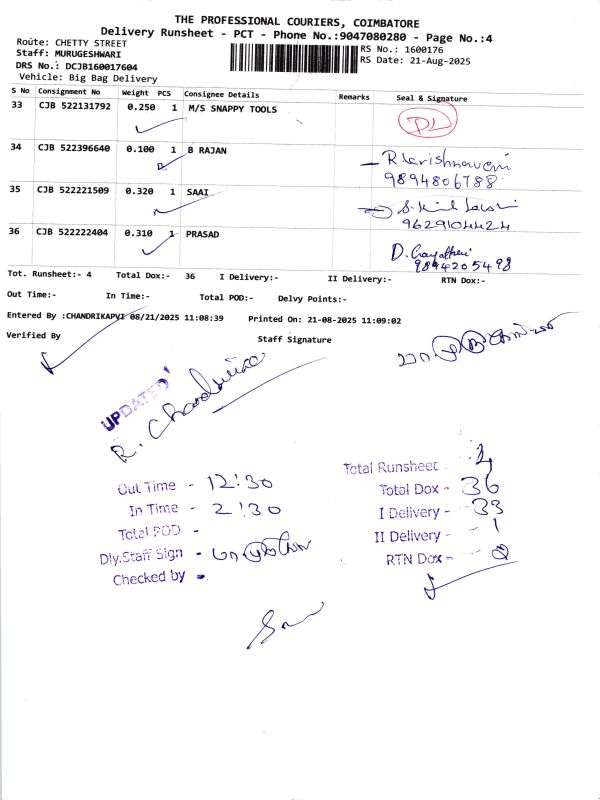 THE PROFESSIONAL COURIERS, COIMBATORE
Delivery Runsheet - PCT - Phone No.:9047080280 - Page No.:4
Route: CHETTY STREET
RS No.: 1600176
Staff: MURUGESHWARI
RS Date: 21-Aug-2025
DRS No.: DCJB160017604
Vehicle: Big Bag Delivery
S No Consignment No Weight PCS Consignee Details Remarks Seal & Signature
33 CJB 522131792 0.250 1 M/S SNAPPY TOOLS
34 CJB 522396640 0.100 1 B RAJAN R Krishnaveni
9894806788
35 CJB 522221509 0.320 1 SAAI
9629104424
36 CJB 522222404 0.310 1 PRASAD D. Gayathri
9894205498
Tot. Runsheet:- 4 Total Dox:- 36 I Delivery:- II Delivery:- RTN Dox:-
Out Time:- In Time:- Total POD:- Delvy Points:-
Entered By :CHANDRIKAPVI 08/21/2025 11:08:39 Printed On: 21-08-2025 11:09:02
Verified By Staff Signature
UPDATED
Out Time - 12:30
In Time - 2:30
Total POD -
Dly.Staff Sign -
Checked by -
Total Runsheet
Total Dox - 36
I Delivery - 33
II Delivery - 1
RTN Dox -